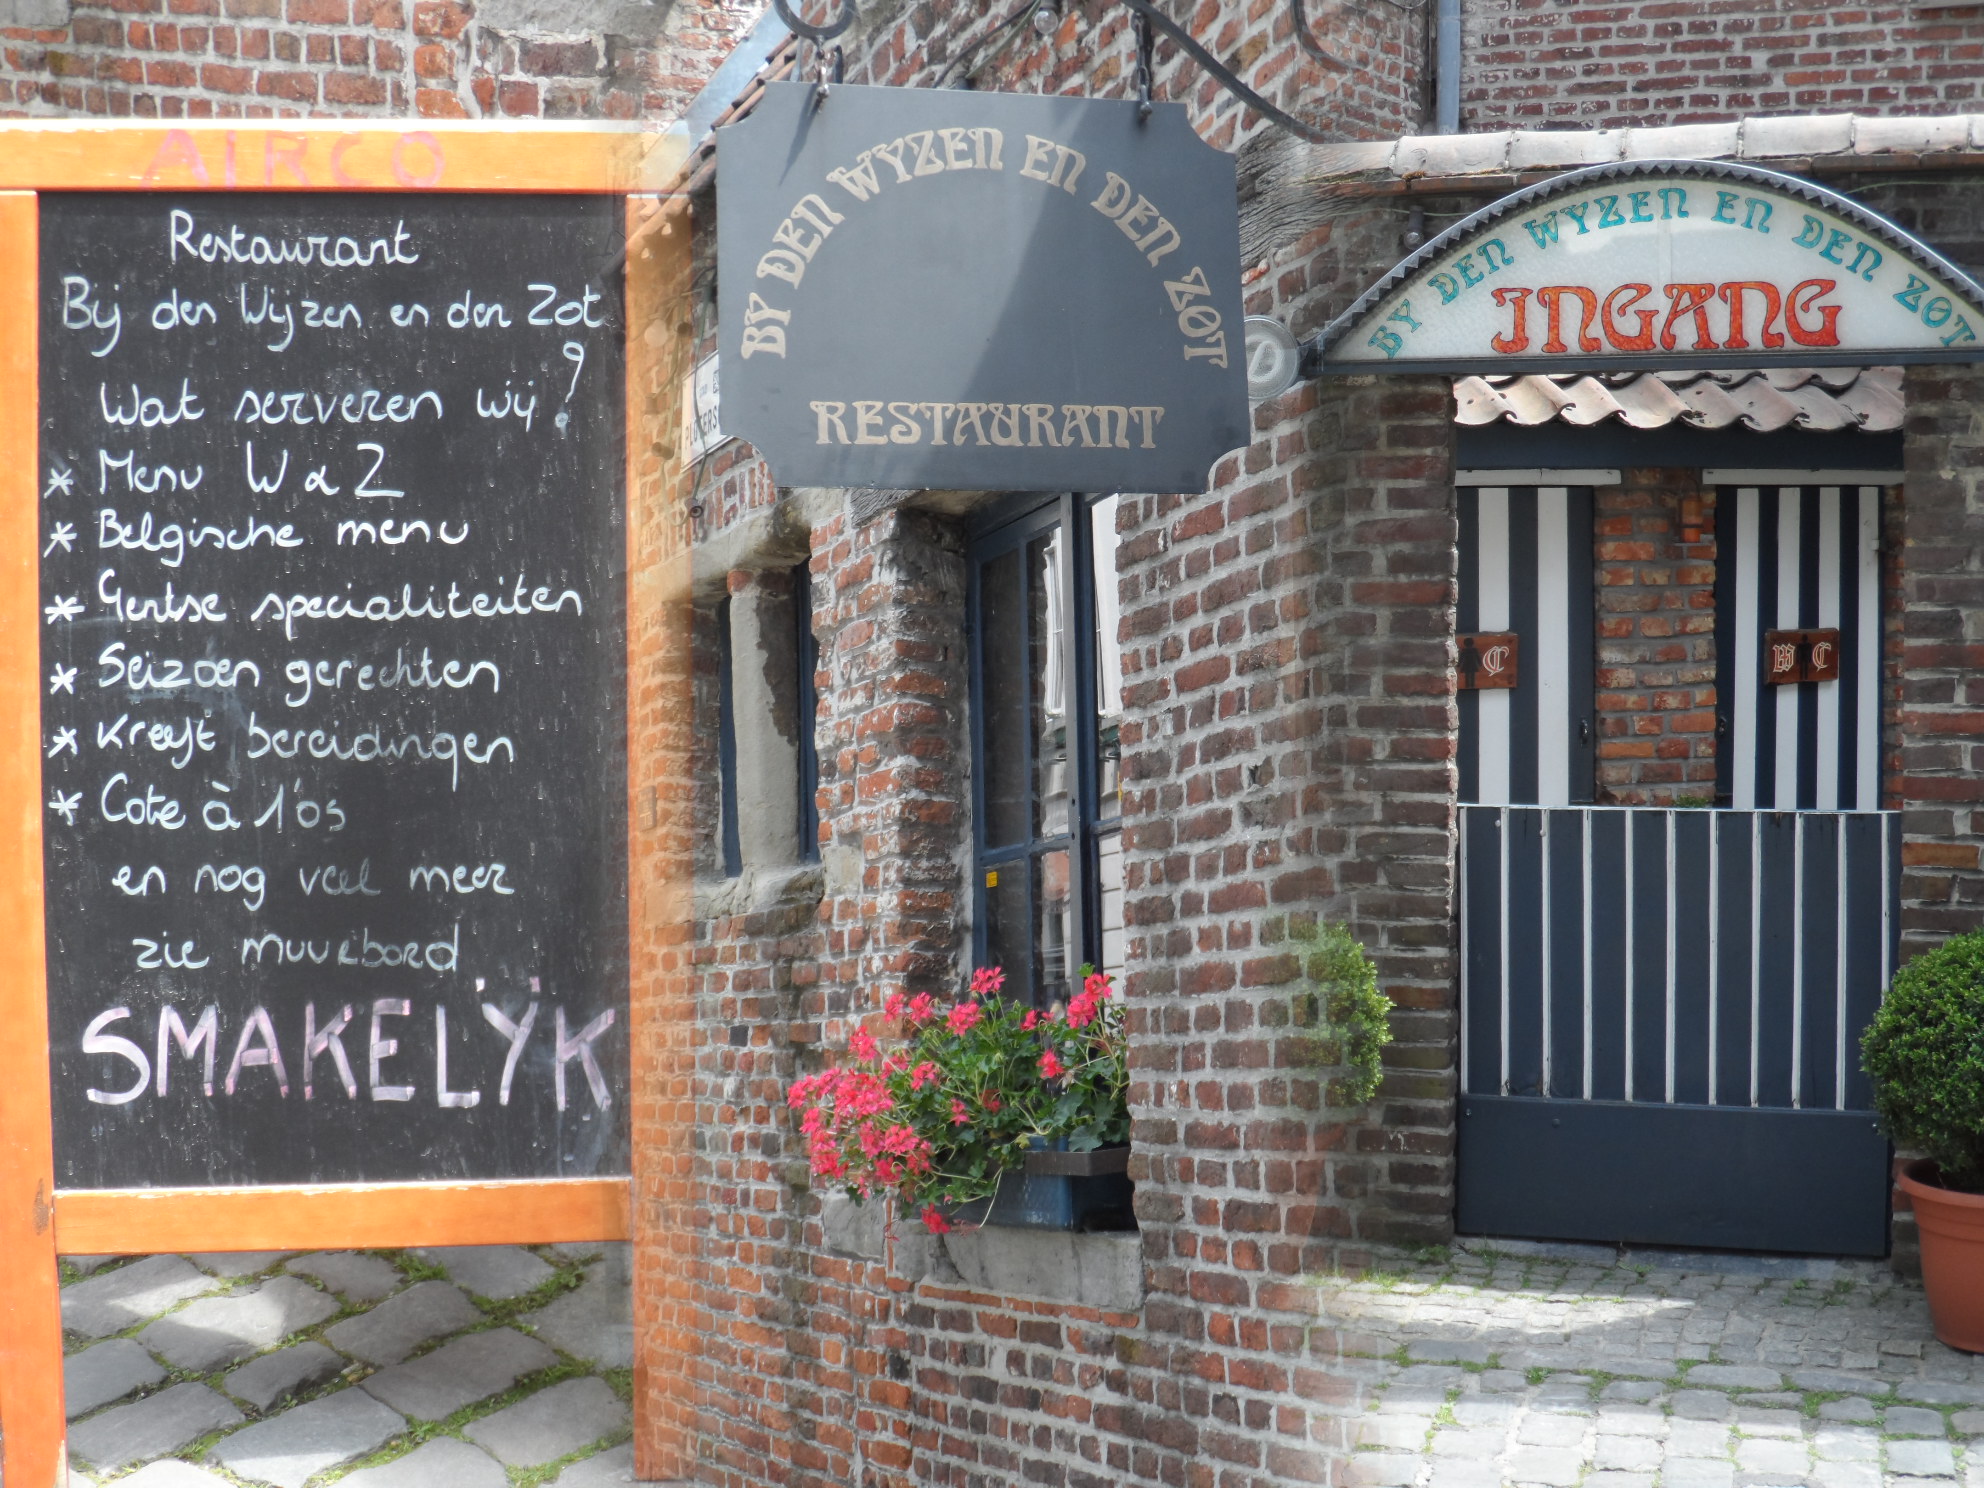 AIRCO
Restaurant
Bij den Wijzen en den Zot
Wat serveren wij ?
* Menu W & Z
* Belgische menu
* Gentse specialiteiten
* Seizoen gerechten
* Kreeft bereidingen
* Cote à l'os
en nog veel meer
zie muurbord
SMAKELŸK
BY DEN WYZEN EN DEN ZOT
RESTAURANT
BY DEN WYZEN EN DEN ZOT
INGANG
C
W C